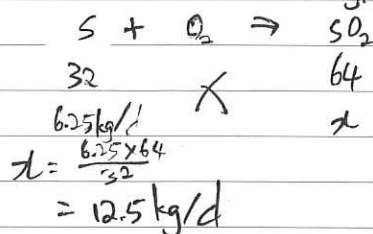 S + O₂ ⇒ SO₂
32 64
6.25kg/d x
x = 6.25×64 / 32
= 12.5 kg/d